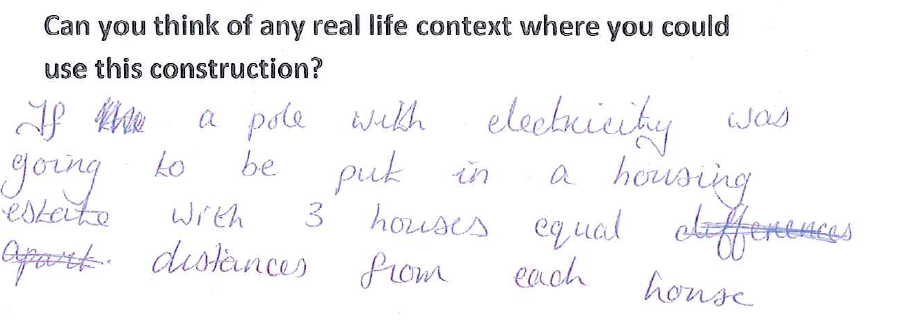 Can you think of any real life context where you could
use this construction?
If a pole with electricity was
going to be put in a housing
estate with 3 houses equal differences
apart. distances from each house